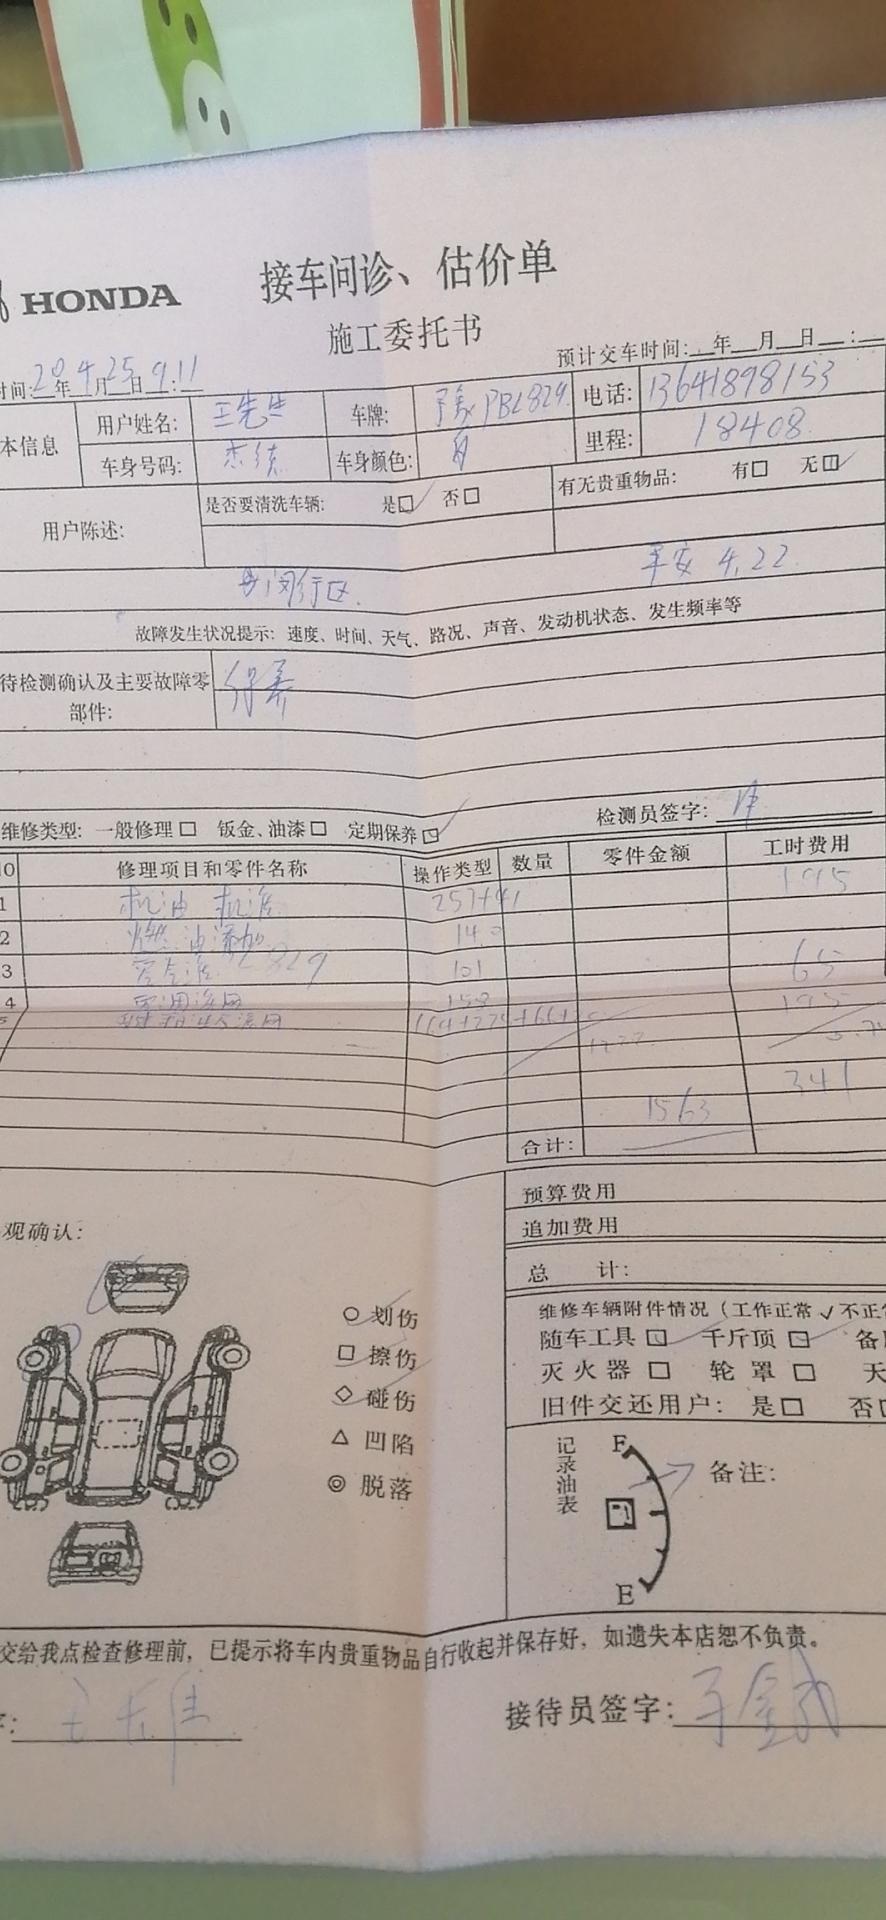 HONDA 接车问诊、估价单
施工委托书
时间:20年4月25日9:11 预计交车时间:__年__月__日__:__
本信息 用户姓名: 王先生 车牌: PBL829 电话: 13641898153
车身号码: 杰德 车身颜色: 白 里程: 18408
用户陈述: 是否要清洗车辆: 是□✓ 否□ 有无贵重物品: 有□ 无□✓
闵行区. 平安 4.22
故障发生状况提示: 速度、时间、天气、路况、声音、发动机状态、发生频率等
待检测确认及主要故障零部件: 保养
检测员签字:
维修类型: 一般修理□ 钣金、油漆□ 定期保养□✓
NO 修理项目和零件名称 操作类型 数量 零件金额 工时费用
1 机油 机滤 257+41 195
2 燃油添加 140
3 空气滤 829 101 65
4 空调滤网 158 195
341
合计: 1563
预算费用
追加费用
总 计:
观确认:
○ 划伤
□ 擦伤
◇ 碰伤
△ 凹陷
◎ 脱落
维修车辆附件情况(工作正常 ✓ 不正常
随车工具□ 千斤顶□ 备
灭火器□ 轮罩□ 天
旧件交还用户: 是□ 否□
记录油表 F E 备注:
交给我点检查修理前，已提示将车内贵重物品自行收起并保存好，如遗失本店恕不负责。
字: 接待员签字: